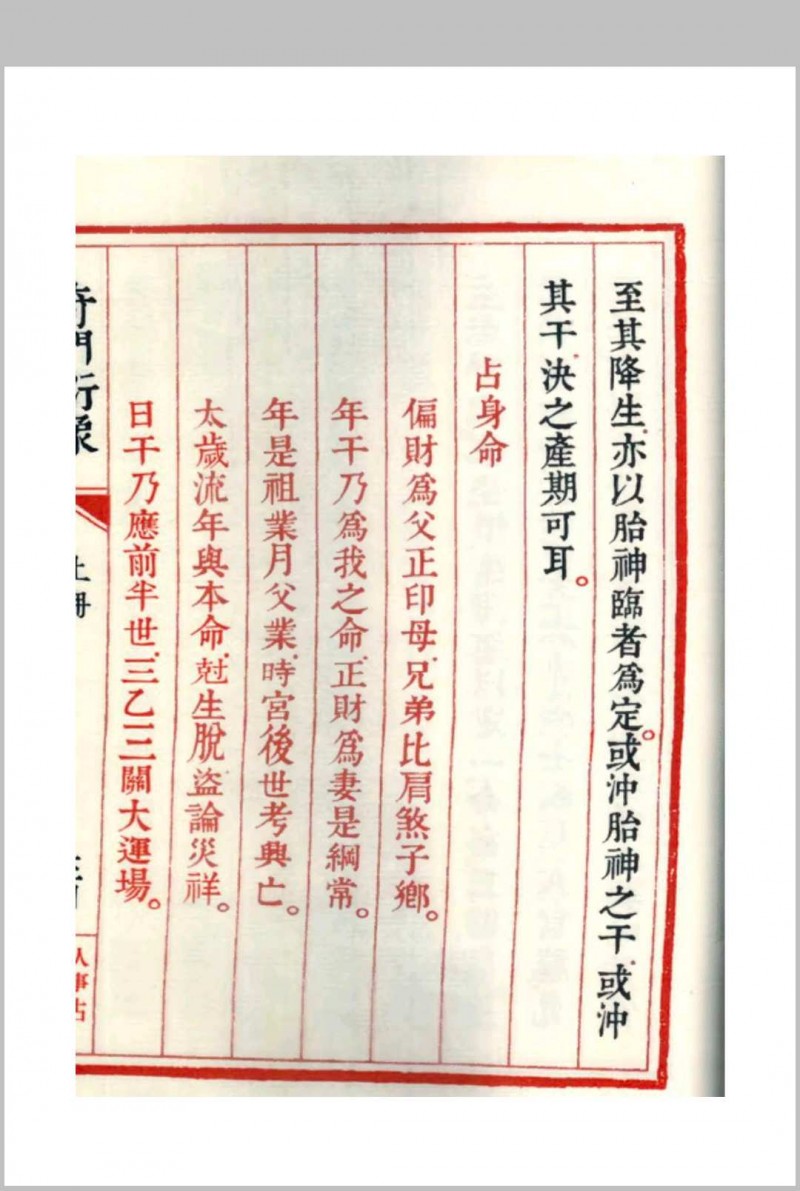 至其降生亦以胎神臨者爲定。或沖胎神之干或沖
其干決之產期可耳。
占身命
偏財爲父正印母兄弟比肩煞子鄉。
年干乃爲我之命正財爲妻是綱常。
年是祖業月父業時宮後世考興亡。
太歲流年與本命尅生脫盜論災祥。
日干乃應前半世三乙三關大運場。
奇門衍象
上冊
人事占